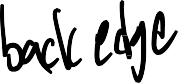 back edge